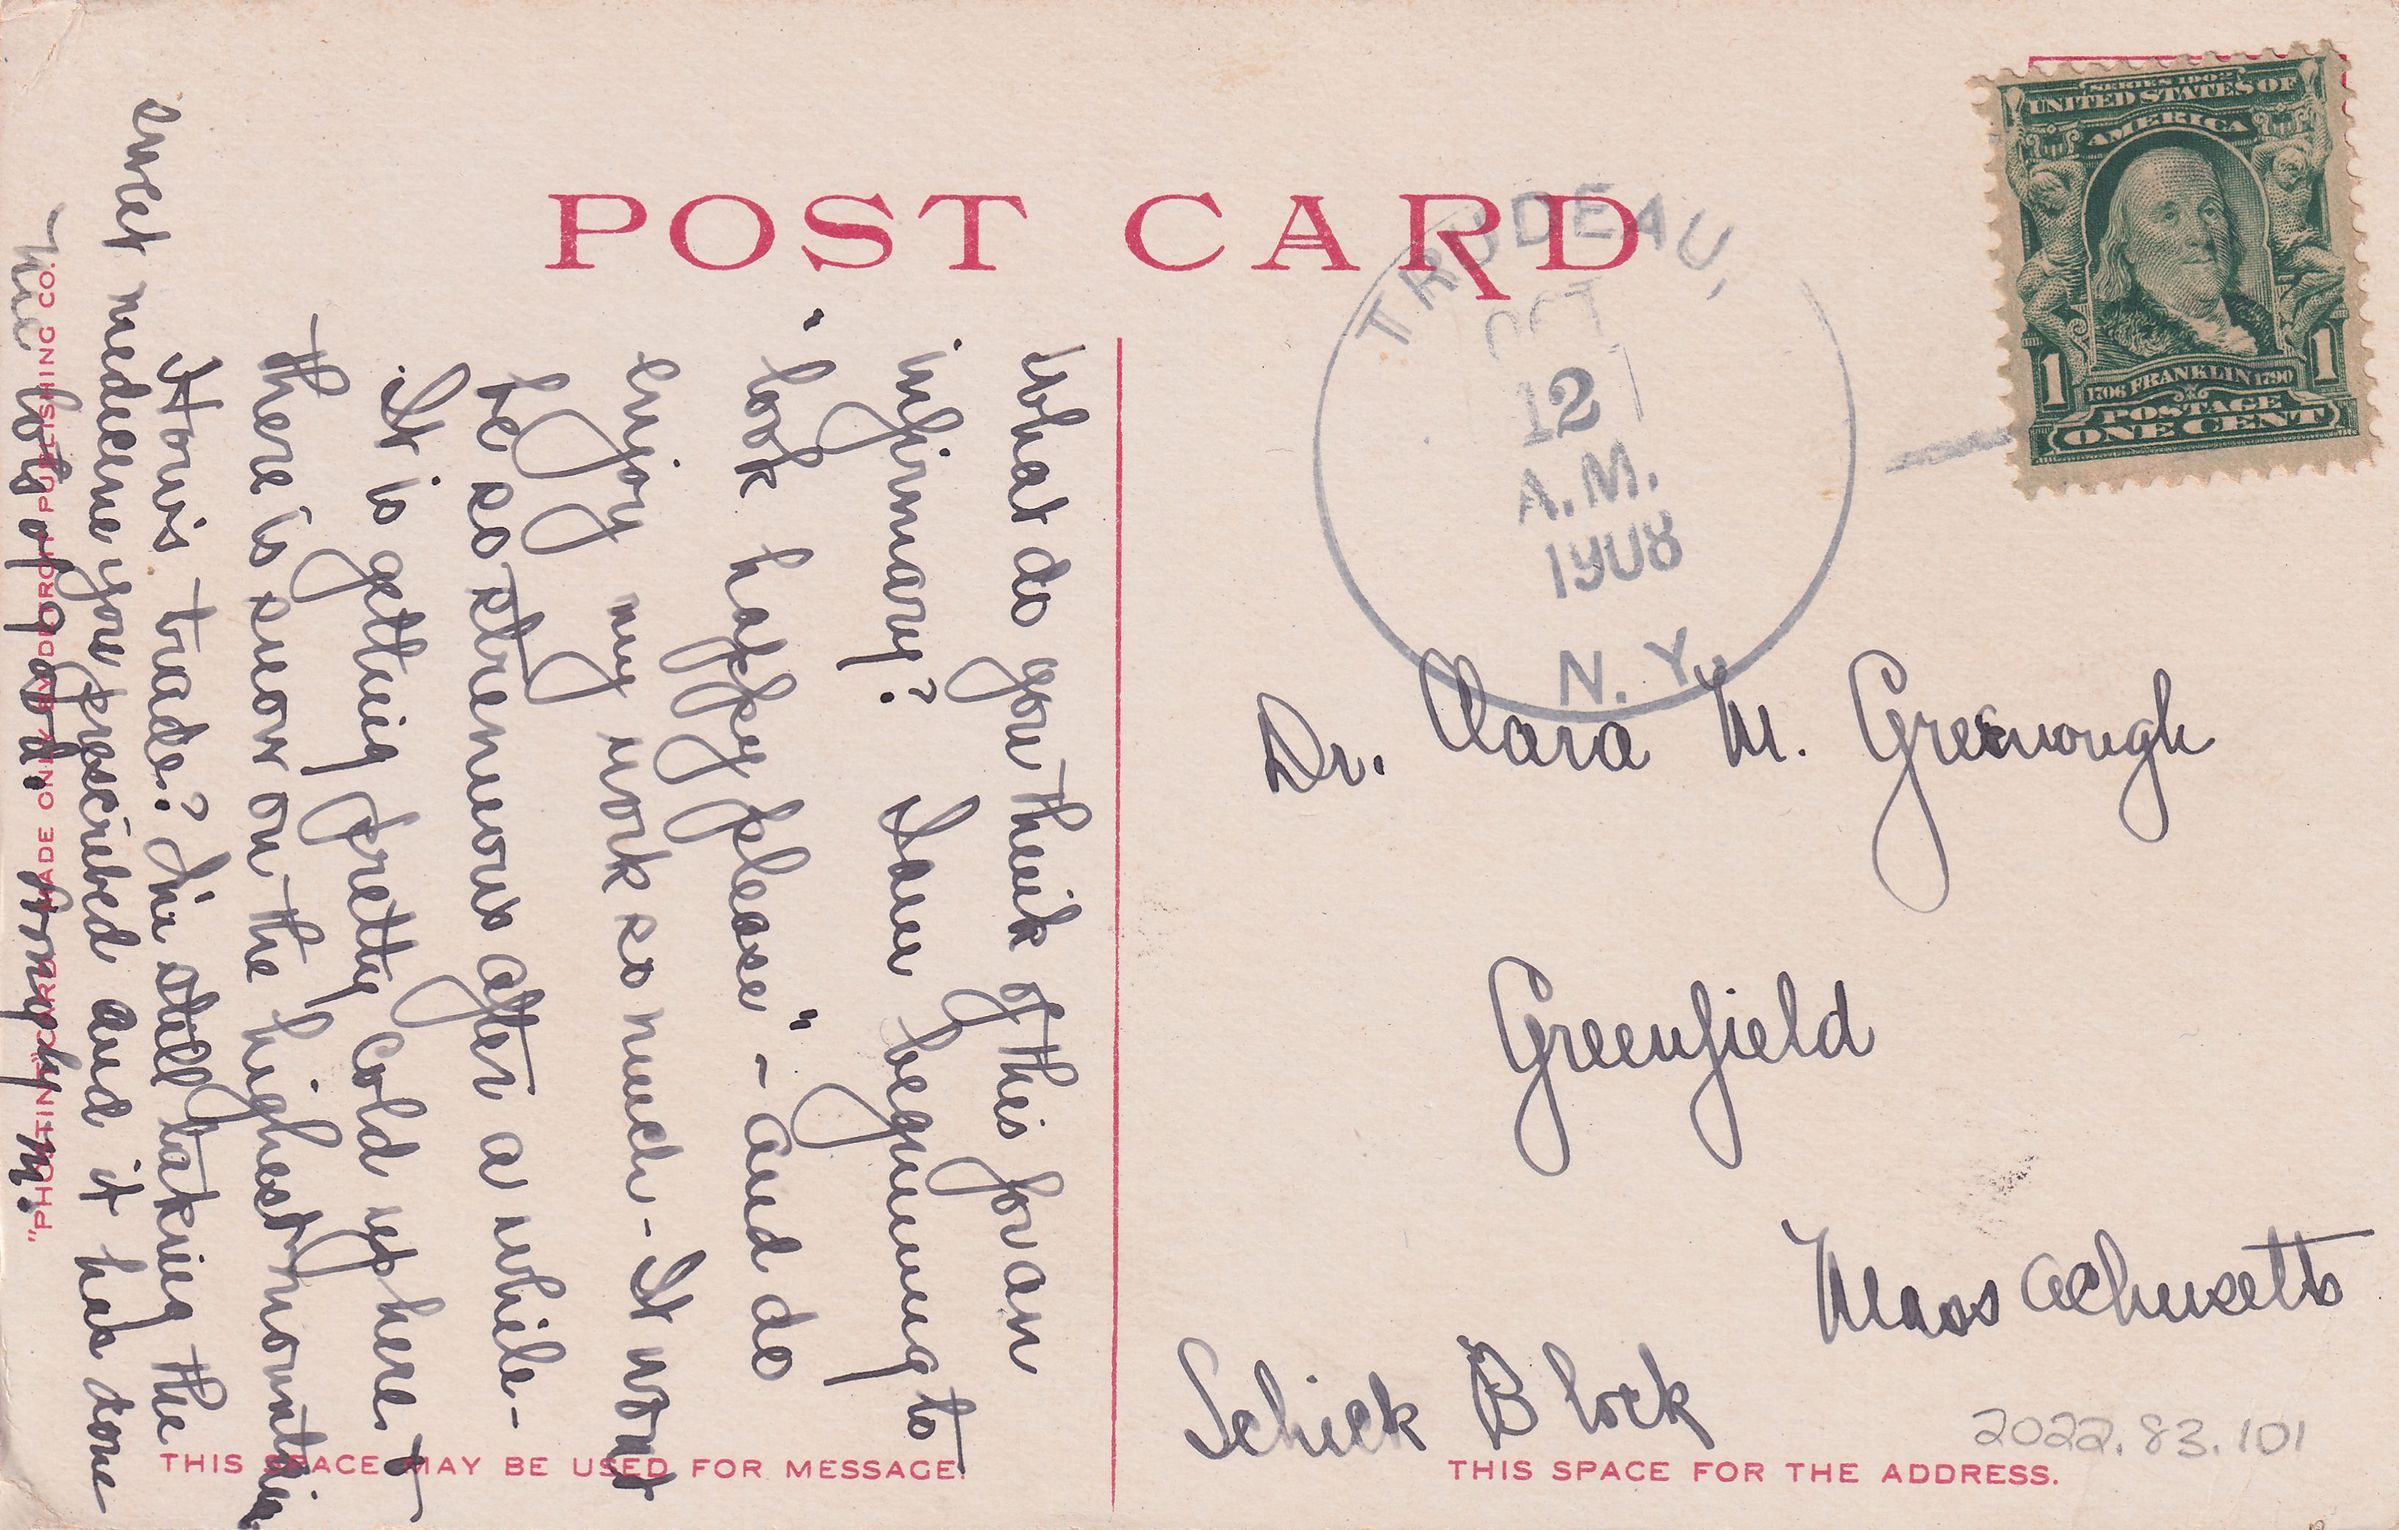 POST CARD
SERIES 1902
UNITED STATES OF
AMERICA
1706 FRANKLIN 1790
1 1
POSTAGE
ONE CENT
TRUDEAU,
OCT
12
A.M.
1908
N.Y.
What do you think of this for an
infirmary? I am beginning to
"look happy please" - and do
enjoy my work so much - It wont
be so strenuous after a while -
It is getting pretty cold up here. +
there is snow on the highest mountains
How is trade? I'm still taking the
sweet medicine you prescribed and it has done
me lots of good.
Dr. Clara M. Greenough
Greenfield
Massachusetts
Schick Block
2022.83.101
THIS SPACE MAY BE USED FOR MESSAGE.
THIS SPACE FOR THE ADDRESS.
"PHOSTINT" CARD MADE ONLY BY DETROIT PUBLISHING CO.